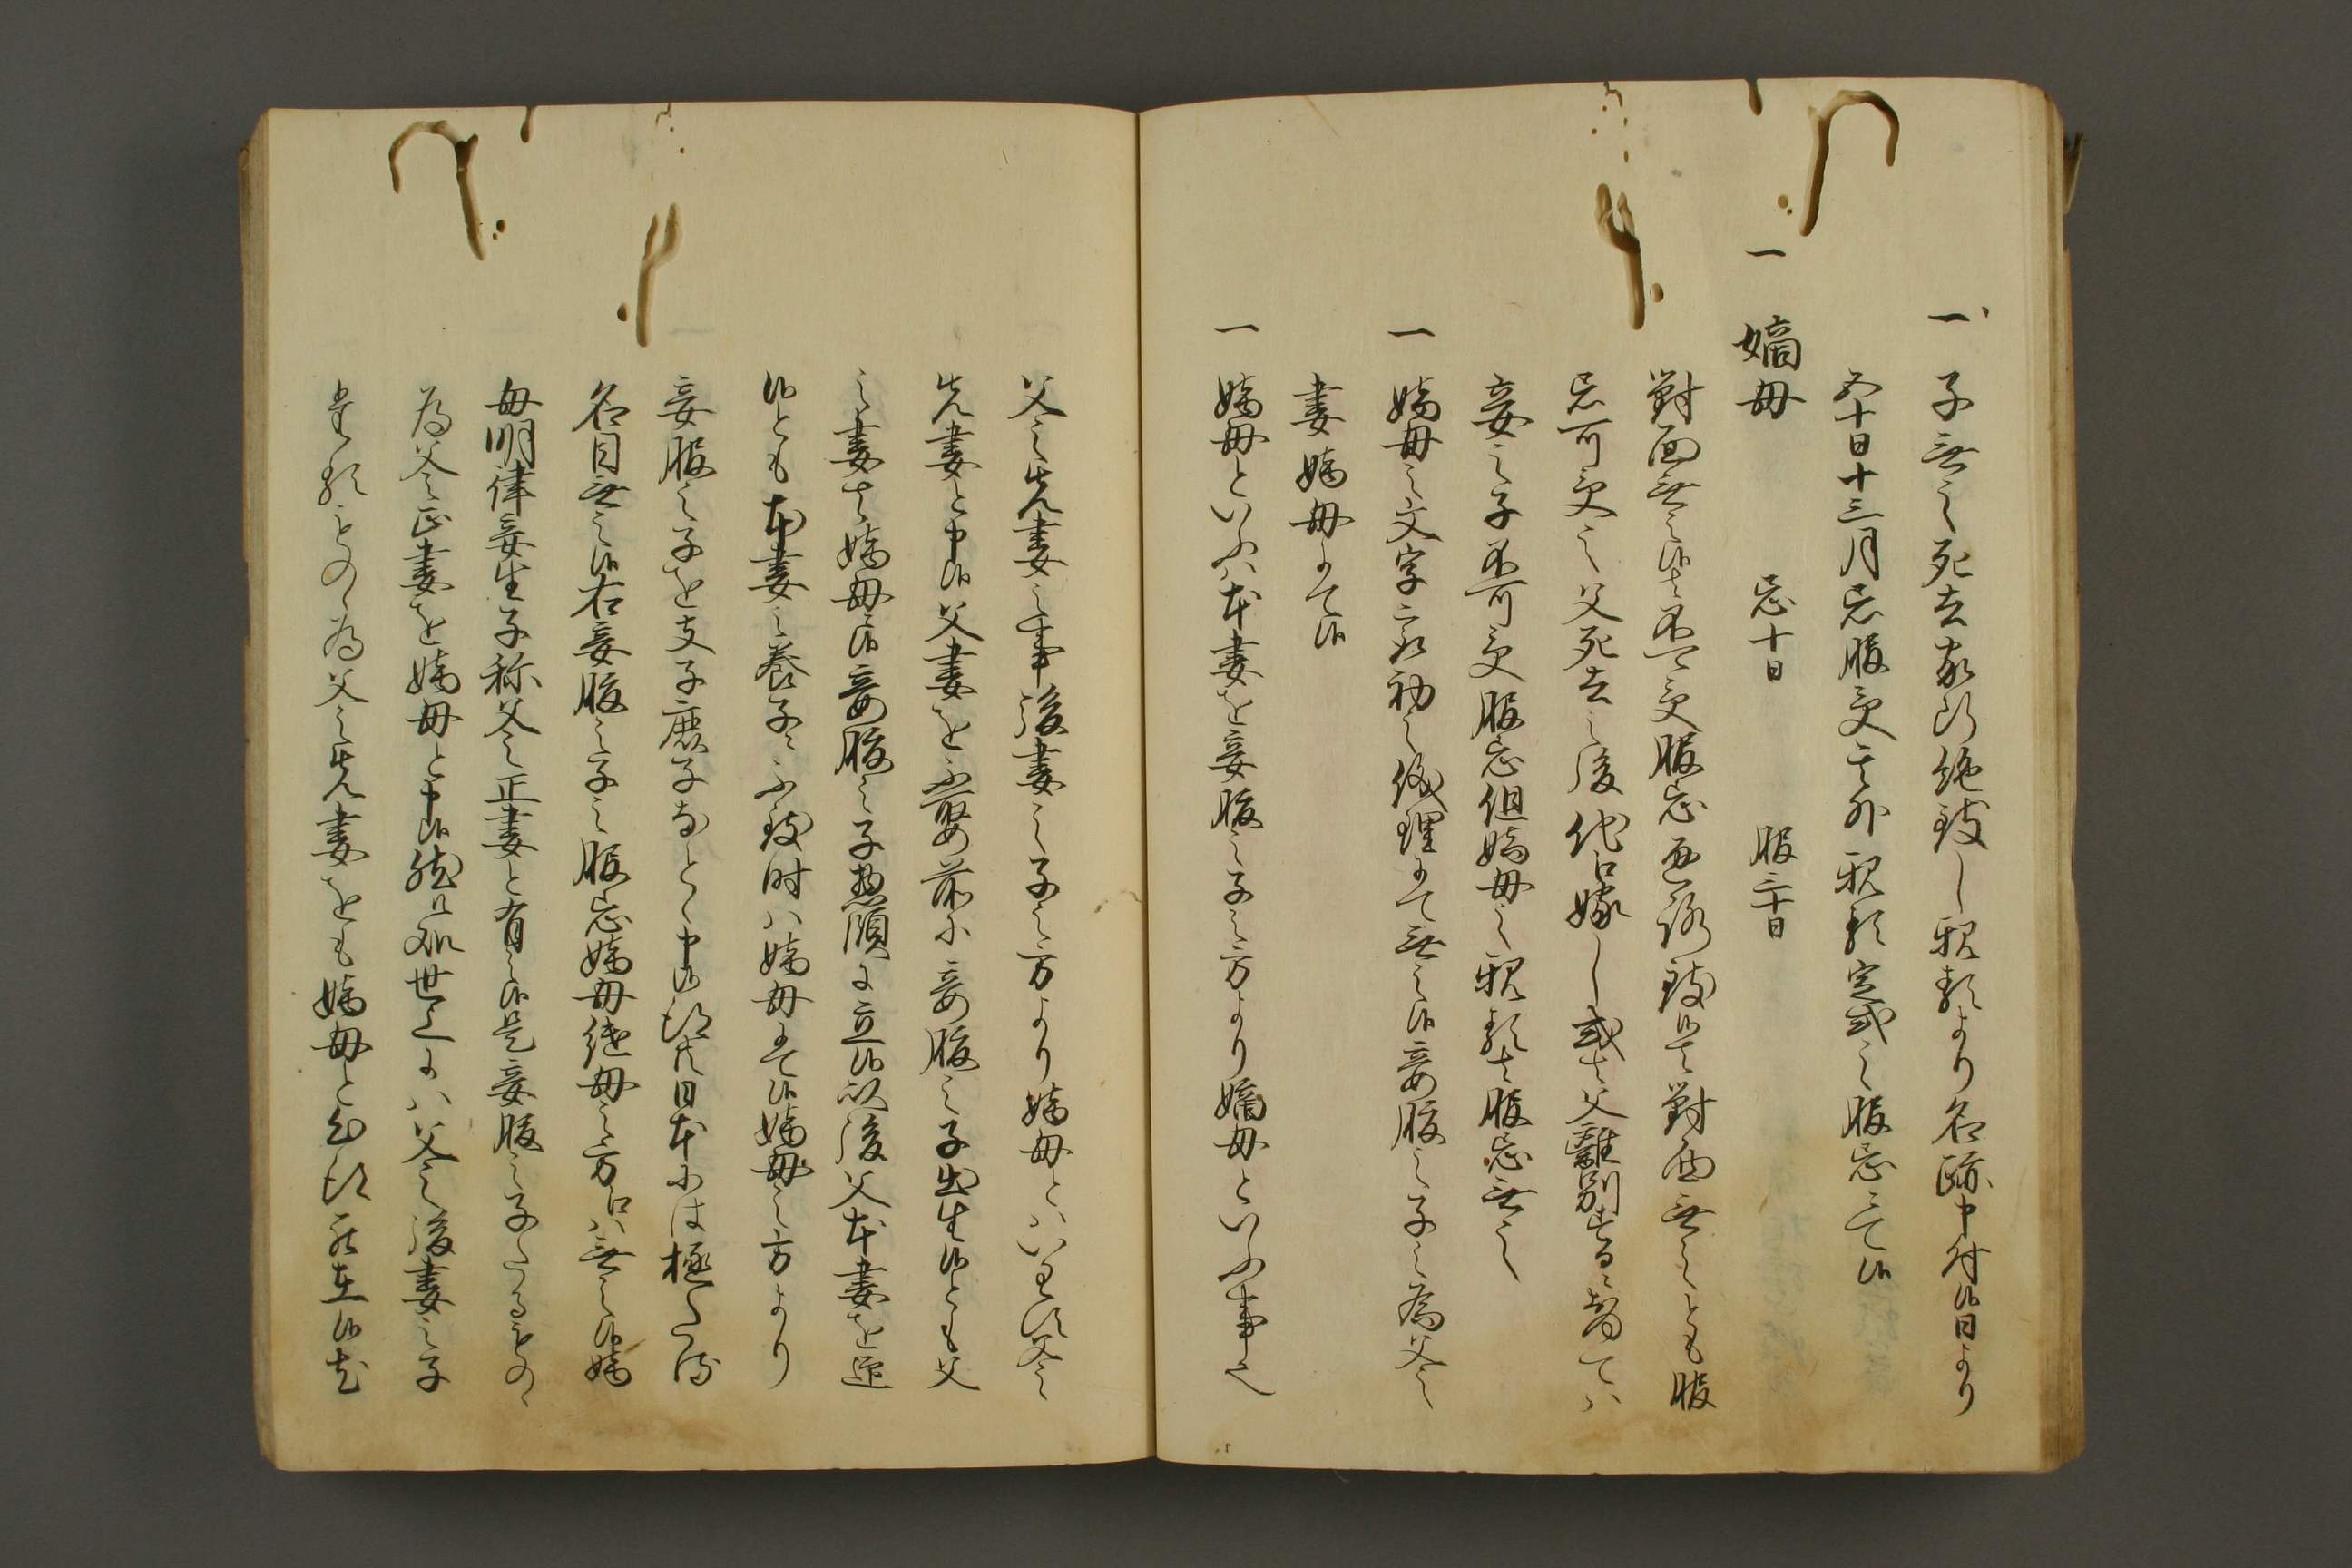 一 子無之死去家断絶致し親類より名跡申付候日より
五十日十三月忌服受其外親類定式之服忌にて候
一 嫡母 忌十日 服三十日
對面無之候ハ不可受服忌通路致候ハ對面無之とも服
忌可受之父死去之後他江嫁し或ハ父離別するに於てハ
妾之子不可受服忌但嫡母之親類ハ服忌無之
一 嫡母之文字 之儀 にて無之候妾腹之子之為父之
妻嫡母にて候
一 嫡母といふハ本妻を妾腹之子之方より嫡母といふ事也
父之先妻之事後妻之子之方より嫡母とハいわす父之
先妻と申候父妻を不娶前に妾腹之子出生候とも父
之妻ハ嫡母候妾腹之子惣領に立候以後父本妻を迎
候とも本妻之養子ニ不致時ハ嫡母にて候嫡母之方より
妾腹之子を支子庶子なとゝ申候得共日本にハ極たる
名目無之候右妾腹之子之服忌嫡母継母之方江ハ無之候嫡
母明律妾生子称父之正妻と有之候是妾腹之子たるもの
為父之正妻を嫡母と申候然処世上にハ父之後妻之子
たるもの為父之先妻をも嫡母と 在候故